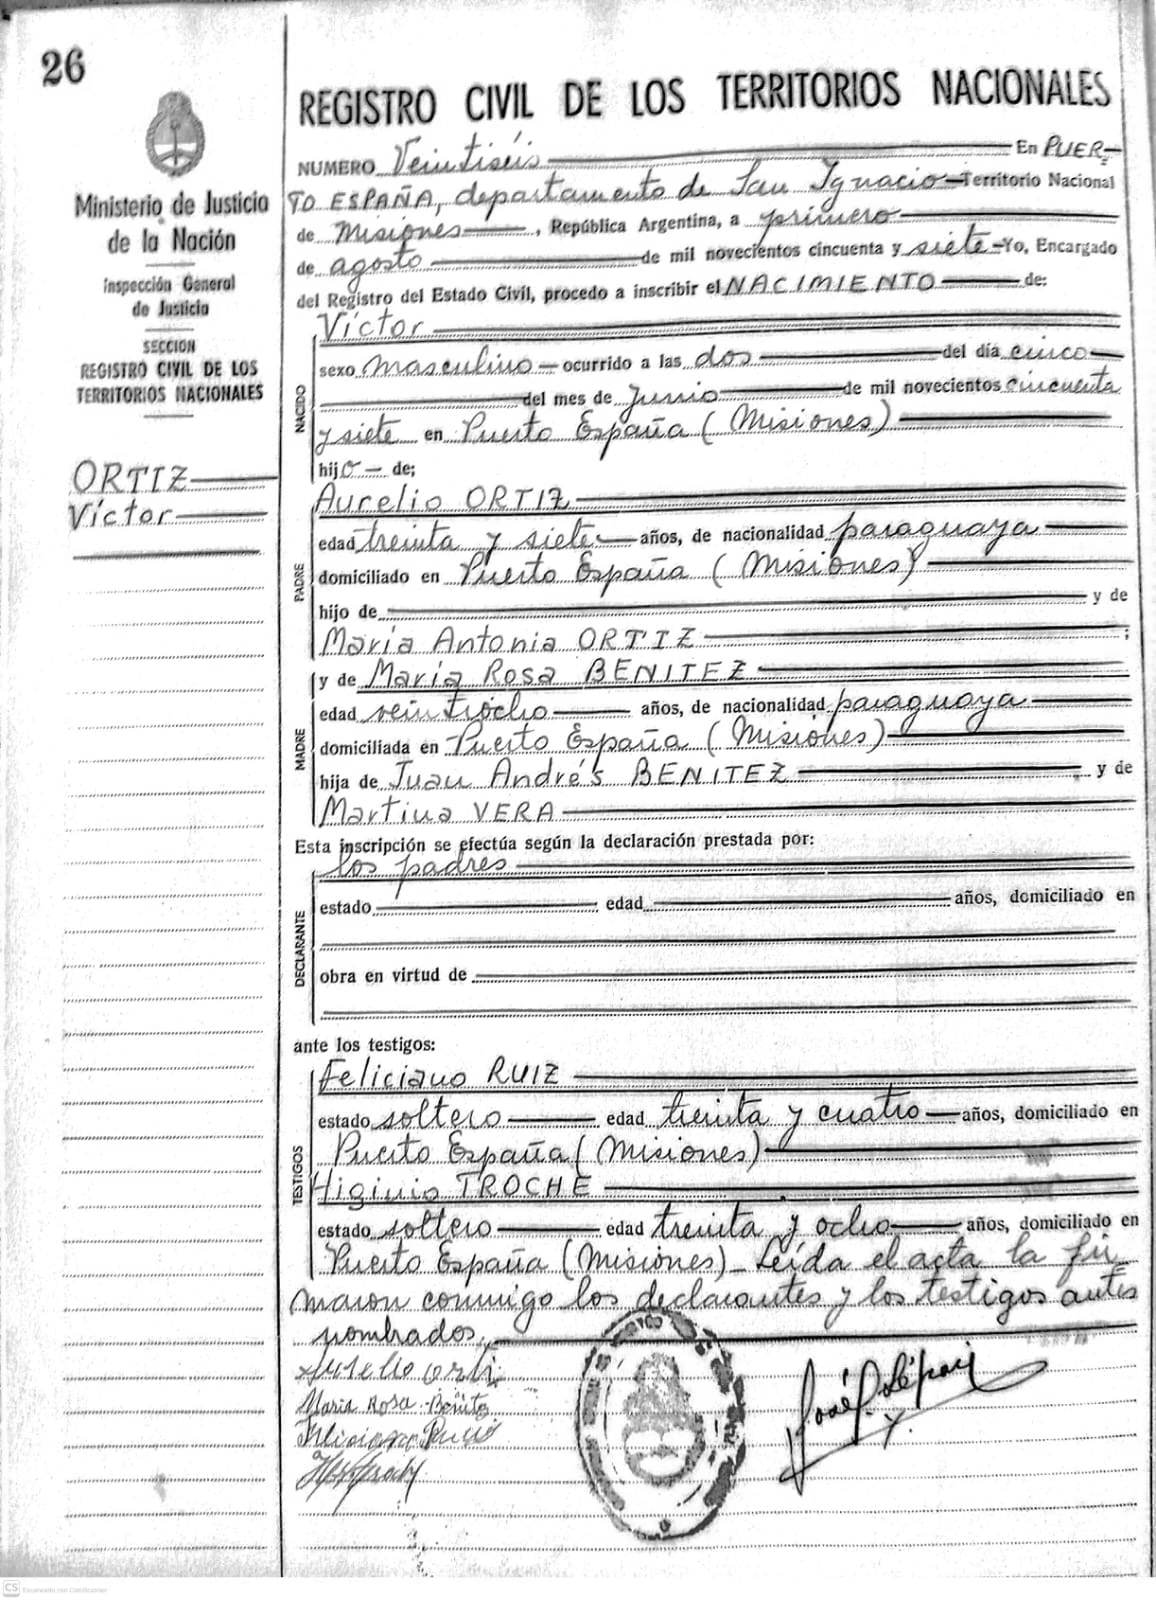 26
Ministerio de Justicia
de la Nación
Inspección General
de Justicia
SECCION
REGISTRO CIVIL DE LOS
TERRITORIOS NACIONALES
ORTIZ
Víctor
REGISTRO CIVIL DE LOS TERRITORIOS NACIONALES
NUMERO Veintiséis En PUER-
TO ESPAÑA, departamento de San Ignacio Territorio Nacional
de Misiones, República Argentina, a primero
de agosto de mil novecientos cincuenta y siete Yo, Encargado
del Registro del Estado Civil, procedo a inscribir el NACIMIENTO de:
NACIDO
Víctor
sexo masculino ocurrido a las dos del día cinco
del mes de Junio de mil novecientos cincuenta
y siete en Puerto España (Misiones)
hijo de;
PADRE
Aurelio ORTIZ
edad treinta y siete años, de nacionalidad paraguaya
domiciliado en Puerto España (Misiones)
hijo de y de
María Antonia ORTIZ ;
MADRE
y de María Rosa BENITEZ
edad veintiocho años, de nacionalidad paraguaya
domiciliada en Puerto España (Misiones)
hija de Juan Andrés BENITEZ y de
Martina VERA
Esta inscripción se efectúa según la declaración prestada por:
DECLARANTE
los padres
estado edad años, domiciliado en
obra en virtud de
ante los testigos:
TESTIGOS
Feliciano RUIZ
estado soltero edad treinta y cuatro años, domiciliado en
Puerto España (Misiones)
Higinio TROCHE
estado soltero edad treinta y ocho años, domiciliado en
Puerto España (Misiones) Leída el acta la fir
maron conmigo los declarantes y los testigos antes
nombrados.
Aurelio Orti
Maria Rosa Benite
Feliciano
José
CS Escaneado con CamScanner